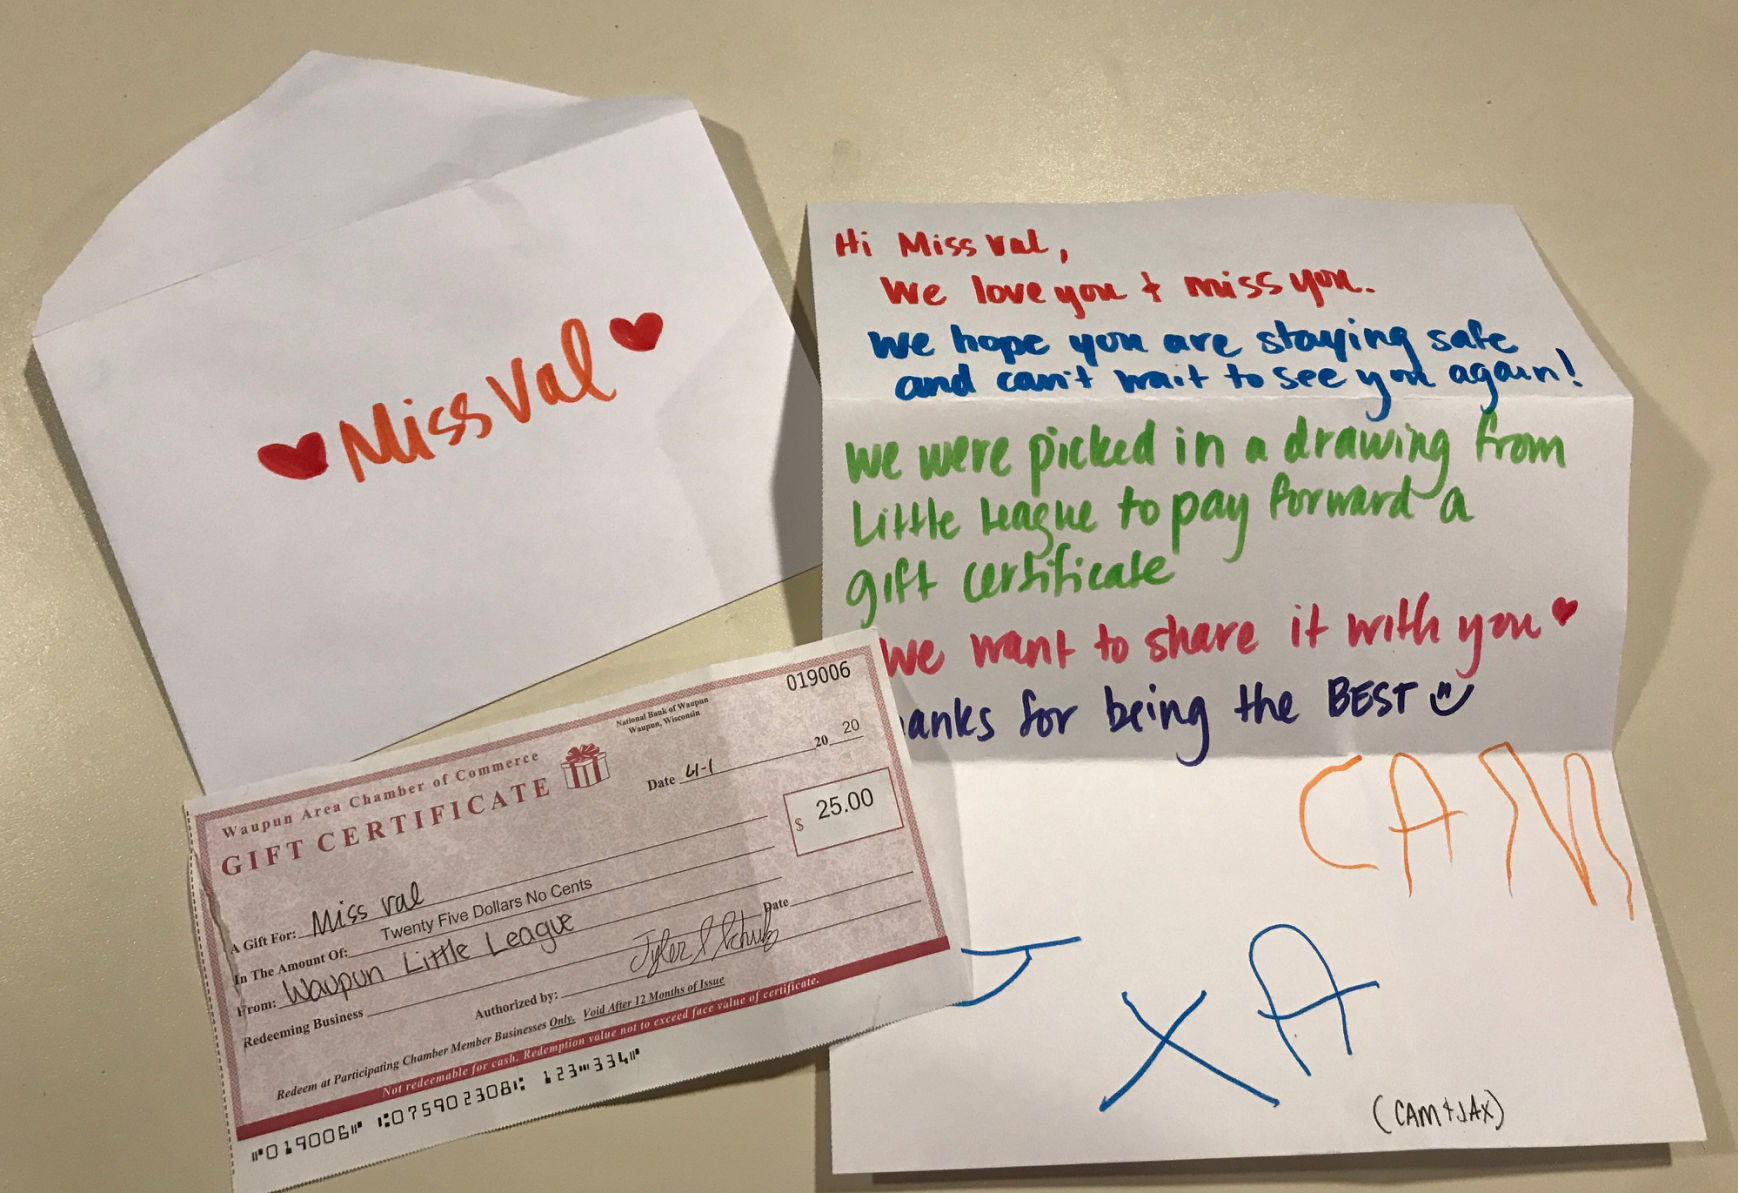 Miss Val
Hi Miss Val,
We love you + miss you.
We hope you are staying safe
and can't wait to see you again!
We were picked in a drawing from
Little League to pay forward a
gift certificate
We want to share it with you
hanks for being the BEST
CAM
J
XA
(CAM + JAX)
019006
National Bank of Waupun
Waupun, Wisconsin
Waupun Area Chamber of Commerce
GIFT CERTIFICATE
Date 4-1 20 20
$ 25.00
A Gift For: Miss Val
In The Amount Of: Twenty Five Dollars No Cents
From: Waupun Little League
Date
Redeeming Business
Authorized by: Tyler J Schulz
Redeem at Participating Chamber Member Businesses Only. Void After 12 Months of Issue
Not redeemable for cash. Redemption value not to exceed face value of certificate.
⑈019006⑈ ⑆075902308⑆ 123⑈334⑈